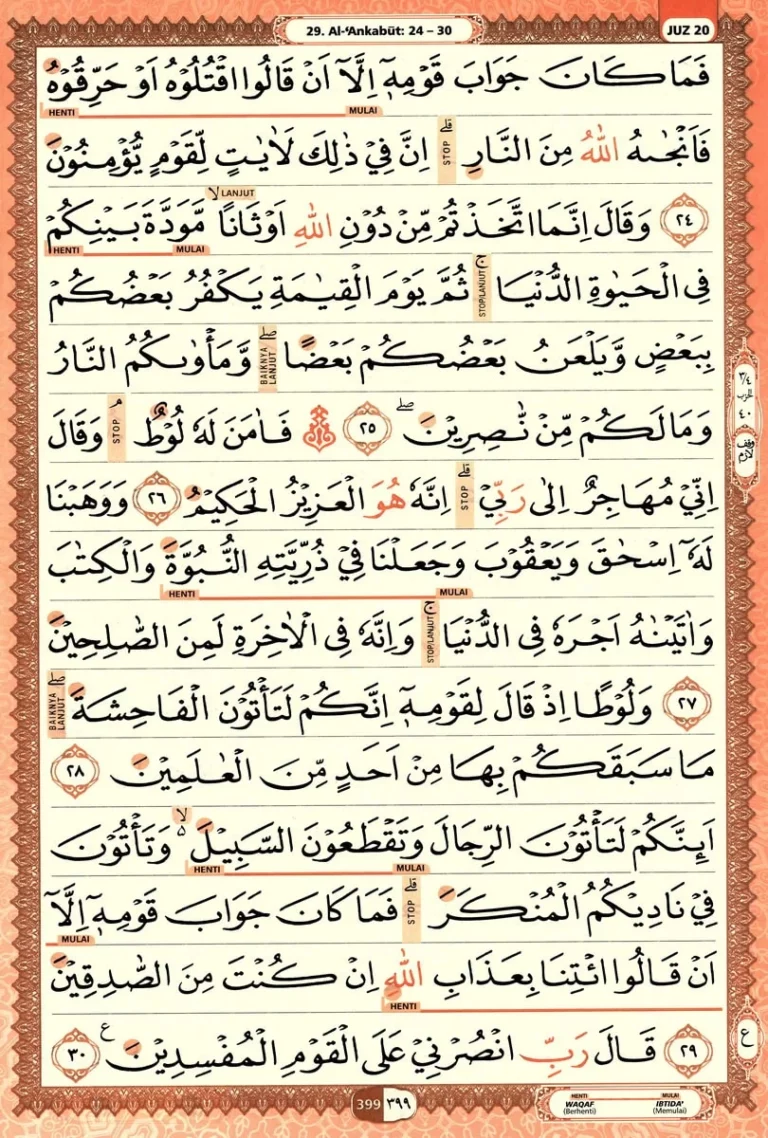 29. Al-‘Ankabūt: 24 – 30
JUZ 20
فَمَا كَانَ جَوَابَ قَوْمِهٖٓ اِلَّآ اَنْ قَالُوا اقْتُلُوْهُ اَوْ حَرِّقُوْهُ
HENTI MULAI
فَاَنْجٰىهُ اللّٰهُ مِنَ النَّارِ ۗ اِنَّ فِيْ ذٰلِكَ لَاٰيٰتٍ لِّقَوْمٍ يُّؤْمِنُوْنَ
STOP
LANJUT
٢٤ وَقَالَ اِنَّمَا اتَّخَذْتُمْ مِّنْ دُوْنِ اللّٰهِ اَوْثَانًا ۙ مَّوَدَّةَ بَيْنِكُمْ
HENTI MULAI
فِى الْحَيٰوةِ الدُّنْيَا ۚ ثُمَّ يَوْمَ الْقِيٰمَةِ يَكْفُرُ بَعْضُكُمْ
STOP/LANJUT
بِبَعْضٍ وَّيَلْعَنُ بَعْضُكُمْ بَعْضًا ۖ وَّمَأْوٰىكُمُ النَّارُ
BAIKNYA LANJUT
وَمَا لَكُمْ مِّنْ نّٰصِرِيْنَ ۖ ٢٥ فَاٰمَنَ لَهٗ لُوْطٌ ۘ وَقَالَ
STOP
اِنِّيْ مُهَاجِرٌ اِلٰى رَبِّيْ ۗ اِنَّهٗ هُوَ الْعَزِيْزُ الْحَكِيْمُ ٢٦ وَوَهَبْنَا
STOP
لَهٗٓ اِسْحٰقَ وَيَعْقُوْبَ وَجَعَلْنَا فِيْ ذُرِّيَّتِهِ النُّبُوَّةَ وَالْكِتٰبَ
HENTI MULAI
وَاٰتَيْنٰهُ اَجْرَهٗ فِى الدُّنْيَا ۚ وَاِنَّهٗ فِى الْاٰخِرَةِ لَمِنَ الصّٰلِحِيْنَ
STOP/LANJUT
٢٧ وَلُوْطًا اِذْ قَالَ لِقَوْمِهٖٓ اِنَّكُمْ لَتَأْتُوْنَ الْفَاحِشَةَ ۖ
BAIKNYA LANJUT
مَا سَبَقَكُمْ بِهَا مِنْ اَحَدٍ مِّنَ الْعٰلَمِيْنَ ٢٨
اَىِٕنَّكُمْ لَتَأْتُوْنَ الرِّجَالَ وَتَقْطَعُوْنَ السَّبِيْلَ ۙ وَتَأْتُوْنَ
HENTI MULAI
فِيْ نَادِيْكُمُ الْمُنْكَرَ ۗ فَمَا كَانَ جَوَابَ قَوْمِهٖٓ اِلَّآ
STOP
MULAI
اَنْ قَالُوا ائْتِنَا بِعَذَابِ اللّٰهِ اِنْ كُنْتَ مِنَ الصّٰدِقِيْنَ
HENTI
٢٩ قَالَ رَبِّ انْصُرْنِيْ عَلَى الْقَوْمِ الْمُفْسِدِيْنَ ࣖ ٣٠
٣/٤
الحزب
٤٠
وقف لازم
ع
399 ٣٩٩
HENTI MULAI
WAQAF IBTIDA'
(Berhenti) (Memulai)